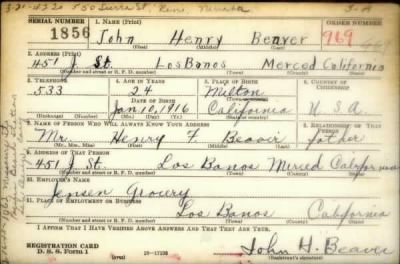 3-21-4320 550 St., Reno, Nevada S-A
SERIAL NUMBER 1. NAME (Print) ORDER NUMBER
1856 John Henry Beaver 969
(First) (Middle) (Last)
2. ADDRESS (Print)
451 J St. Los Banos Merced California
(Number and street or R. F. D. number) (Town) (County) (State)
3. TELEPHONE 4. AGE IN YEARS 5. PLACE OF BIRTH 6. COUNTRY OF CITIZENSHIP
533 24 Milton
DATE OF BIRTH
Jan, 10, 1916 California U.S.A.
(Mo.) (Day) (Yr.) (State or country)
7. NAME OF PERSON WHO WILL ALWAYS KNOW YOUR ADDRESS 8. RELATIONSHIP OF THAT PERSON
Mr. Henry F. Beaver father
(Mr., Mrs., Miss) (First) (Middle) (Last)
9. ADDRESS OF THAT PERSON
451 J St. Los Banos Merced California
(Number and street or R. F. D. number) (Town) (County) (State)
10. EMPLOYER'S NAME
Jensen Grocery
11. PLACE OF EMPLOYMENT OR BUSINESS
Los Banos California
(Number and street or R. F. D. number) (Town) (County) (State)
I AFFIRM THAT I HAVE VERIFIED ABOVE ANSWERS AND THAT THEY ARE TRUE.
REGISTRATION CARD
D. S. S. Form 1 John H. Beaver
(Registrant's signature)